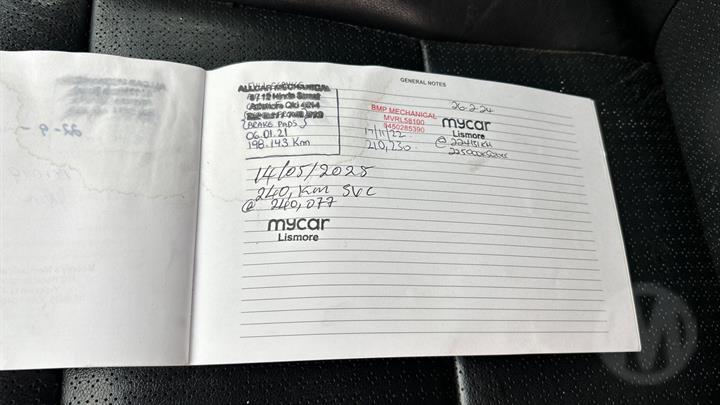 GENERAL NOTES
ALLCAR MECHANICAL
Hinde Street
Ashmore Qld 4214
(BRAKE PADS)
06.01.21
198.143 Km
BMP MECHANICAL
MVRL58100
0450285390
17/11/22
210,230
26-2-24
mycar
Lismore
14/05/2025
240, Km SVC
@ 240,077
mycar
Lismore
22-9-